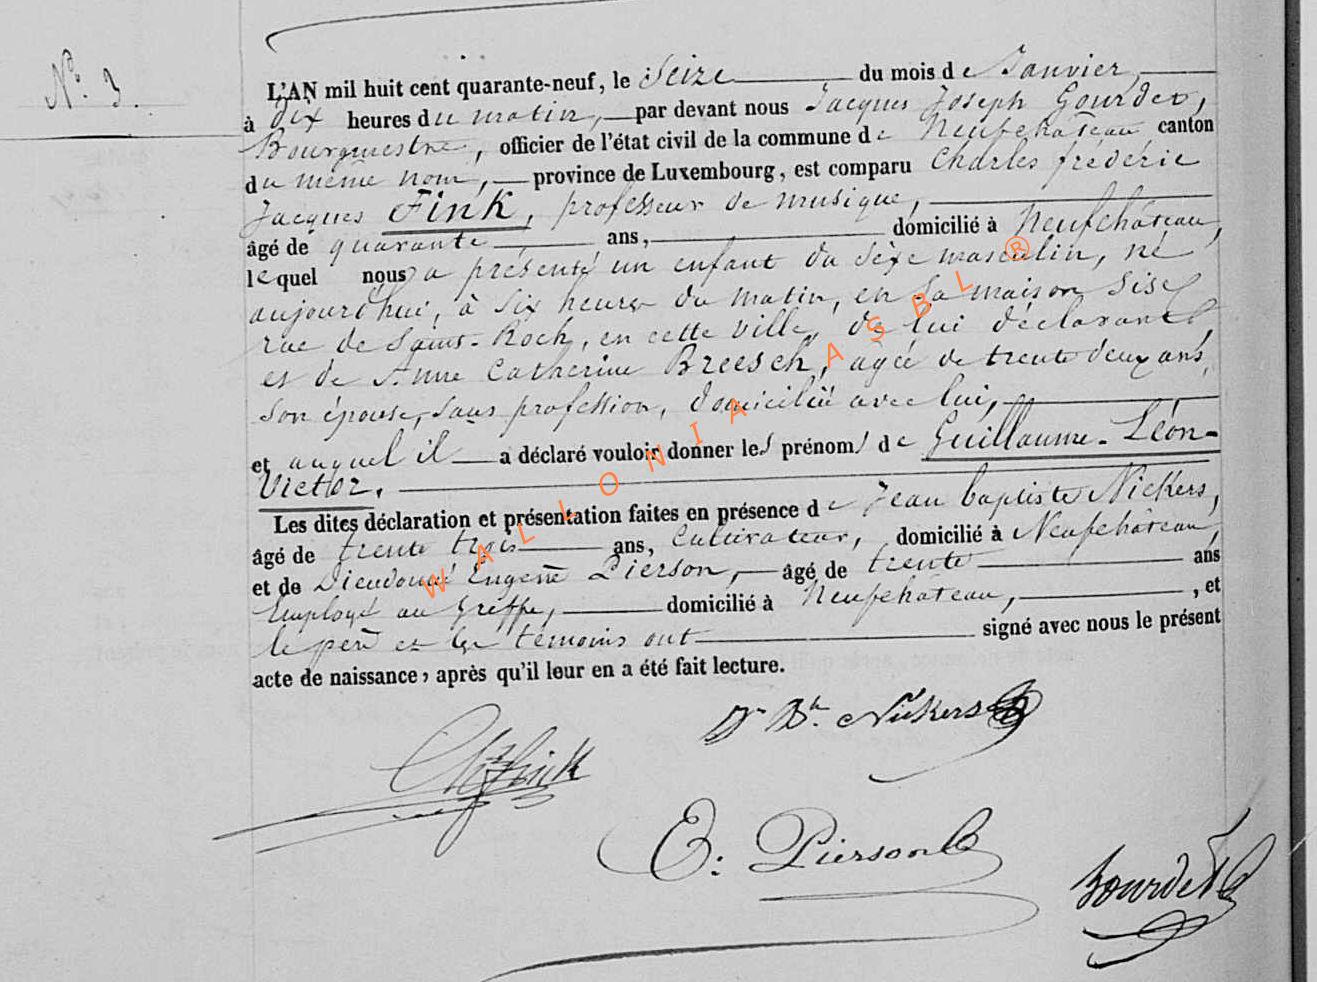 N° 3.
L'AN mil huit cent quarante-neuf, le Seize du mois de Janvier,
à Dix heures du matin, par devant nous Jacques Joseph Gourdet,
Bourgmestre, officier de l'état civil de la commune de Neufchâteau canton
du même nom, province de Luxembourg, est comparu Charles fréderic
Jacques FINK, professeur de musique,
âgé de quarante ans, domicilié à Neufchâteau,
lequel nous a présenté un enfant du sèxe masculin, né
aujourd'hui, à six heures du matin, en sa maison sise
rue de Saint-Roch, en cette ville, de lui déclarant,
et de Anne Catherine Breesch, agée de trente deux ans,
son épouse, sans profession, domiciliée avec lui,
et auquel il a déclaré vouloir donner les prénoms de Guillaume-Léon-
Victor.
Les dites déclaration et présentation faites en présence de Jean baptiste Nickers,
âgé de trente trois ans, Cultivateur, domicilié à Neufchâteau,
et de Dieudonné Eugene Pierson, âgé de trente ans
Employé au Greffe, domicilié à Neufchâteau, , et
le père et les témoins ont signé avec nous le présent
acte de naissance, après qu'il leur en a été fait lecture.
Nickers
Fink
E. Pierson
Gourdet
WALLONIA ASBL ®